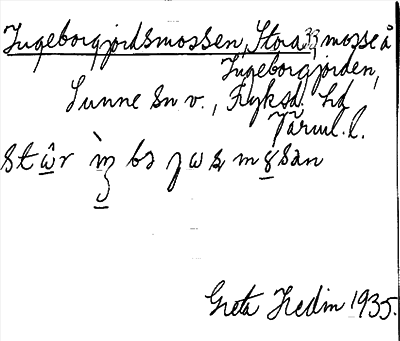 Ingeborgjordsmossen, Stora 33, mosse å
Ingeborgjorden,
Sunne sn v., Fryksd. hd
Värml. l.
Greta Hedin 1935.